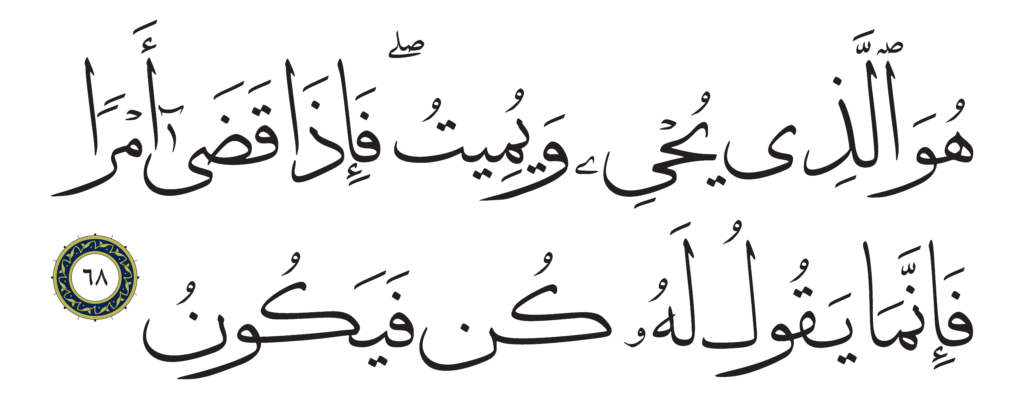 هُوَ ٱلَّذِى يُحْىِۦ وَيُمِيتُ ۖ فَإِذَا قَضَىٰٓ أَمْرًا
فَإِنَّمَا يَقُولُ لَهُۥ كُن فَيَكُونُ ٦٨